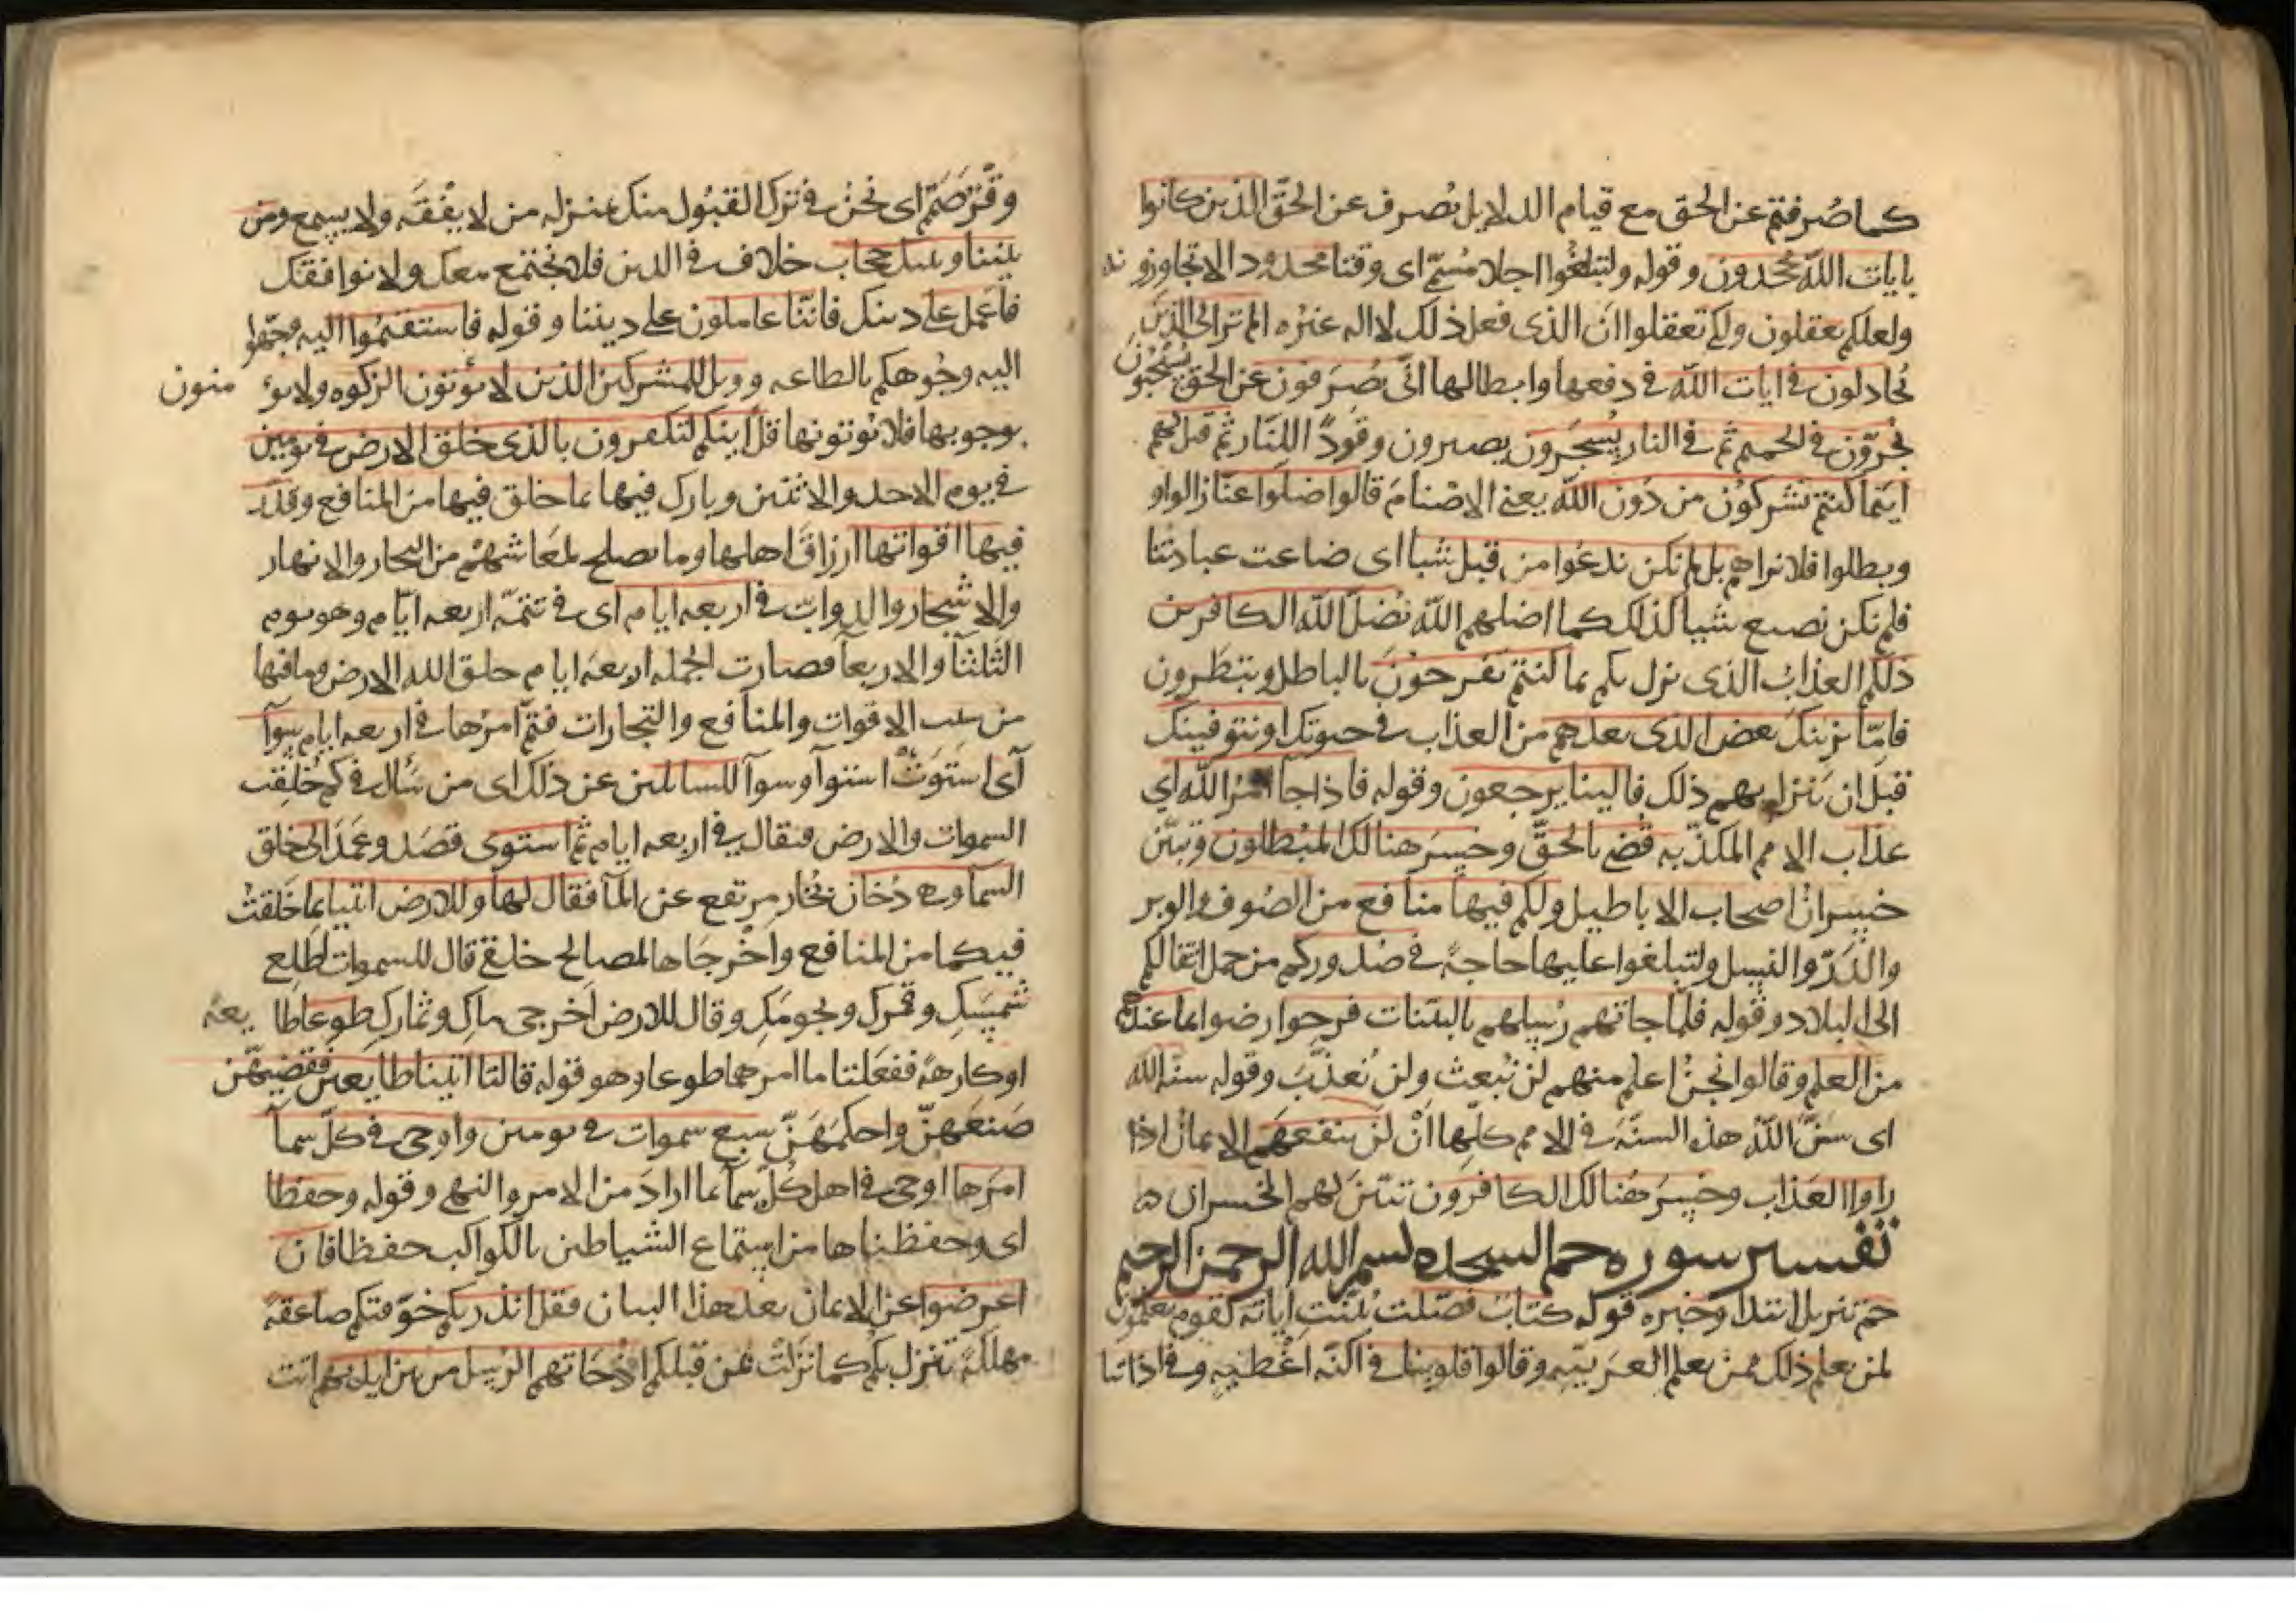 كما صُرفتم عن الحق مع قيام الدلايل تُصرف عن الحقّ الذين كانوا
بايات الله يجحدون وقوله ولتبلغُوا اجلا مُسمّى اى وقتا محدودا لا تجاوزونه
ولعلكم تعقلون ولكى تعقلوا انّ الذى فعل ذلك لا اله غيرُه الم تر الى الذين
يُجادلون فى ايات الله فى دفعها وابطالها انّى يُصرَفون عن الحق يُسْحبُون
يُجرّون فى الحميم ثم فى النار يُسجَرون يصيرون وقُودًا للنّار ثم قيل لهم
اينما كنتم تشركون من دون الله يعنى الاصنام قالوا ضلوا عنّا زالوا
وبطلوا فلا نراهم بل لم نكن ندعُوا من قبل شيا اى ضاعت عبادتنا
فلم نكن نصنع شيا كذلك كما اضلهم الله يُضلّ الله الكافرين
ذلكم العذاب الذى نزل بكم بما كنتم تفرحون بالباطل وتبطَرون
فامّا نرينك بعض الذى نعدهم من العذاب فى حيوتك او نتوفينك
قبل ان ينزل بهم ذلك فالينا يرجعون وقوله فاذا جا امرُ الله اي
عذاب الامم المكذّبه قُضى بالحقّ وخسِرَ هنالك المبُطلون وتبيّن
خسرانُ اصحاب الاباطيل ولكم فيها منافع من الصُوف والوبر
والدَرّ والنسل ولتبلغوا عليها حاجةً فى صُدوركم من حمل اثقالكم
الى البلاد وقوله فلما جاتهم رُسلهم بالبيّنات فرحوا رضوا بما عندهم
من العلم وقالوا نحنُ اعلم منهم لن نُبعث ولن نُعذّبَ وقوله سنّه الله
اى سَنّ اللهُ هذه السنّهَ فى الامم كلّها انْ لن ينفعَهم الايمانُ اذا
راوا العَذاب وخسِرَ هُنالك الكافرون تبيّنَ لهم الخسران
تفسير سوره حم السجده بسم الله الرحمن الرحيم
حم تنزيل ابتدا وخبره قوله كتاب فصّلت بُيّنت اياته لقوم يعلمون
لمن يعلم ذلك ممن يعلم العَربيّه وقالوا قلوبنا فى اكنّه اغْطيهٍ وفى اذاننا
وقْر صَمَم اى نحن فى ترك القبُول منك بمنزله من لا يفْقَه ولا يسمع ومن
بيننا وبينك حجاب خلاف فى الدين فلا نجتمع معك ولا نوافقك
فاعمل على دينك فاننا عاملون على ديننا وقوله فاستقيمُوا اليه وجّهوا
اليه وجُوهكم بالطاعه وويل للمشركين الذين لا يؤتون الزكوه ولا يؤمنون
بوجوبها فلا يُوتونها قل اينكم لتكفرون بالذى خلق الارض فى يومين
فى يوم الاحد والاثنين وبارك فيها بما خلق فيها من المنافع وقدّر
فيها اقواتها ارزاقَ اهلها وما يصلح لمعَاشهم من البحار والانهار
والاشجار والدوابّ فى اربعه ايام اى فى تتمّه اربعه ايّام وهو يوم
الثلثا والاربعا فصارت الجمله اربعه ايام خلق الله الارض وما فيها
من سبب الاقوات والمنافع والتجارات فتمّ امرُها فى اربعه ايام سوآ
اى استَوَتْ استوآ وسوآ للسائلين عن ذلك اى من سُال فى كم خُلقت
السموات والارض فيقال فى اربعه ايام ثم استوى قصَد وعمَدَ الى خلق
السمآ وهى دُخان بُخار مرتفع عن المآ فقال لها وللارض ائتيا بما خَلقتُ
فيكما من المنافع واخْرجَاها لمصالح خلقى قال للسموات اطلعى
شمسَكِ وقمرك ونجومَكِ وقال للارض اخرجى ماكِ وثماركِ طوعا طايعه
او كارهةً ففعَلتا ما امرهما طوعا وهو قوله قالتا اتينا طايعين فقضيهُن
صَنعهنّ واحكمَهنّ سبع سموات فى يومين واوحى فى كلّ سمآ
امرَها اوحى فى اهل كُلّ سمآ بما ارادَ من الامر والنهى وقوله وحفظا
اى وحفظناها من استماع الشياطين بالكواكب حفظا فان
اعرضوا عن الايمان بعد هذا البيان فقل انذرتكم خوّفتكم صاعقةً
مهلكةً تنزل بكم كما نزلتْ بمن قبلكم اذْ جَاتهم الرُسل من بين ايديهم اتت